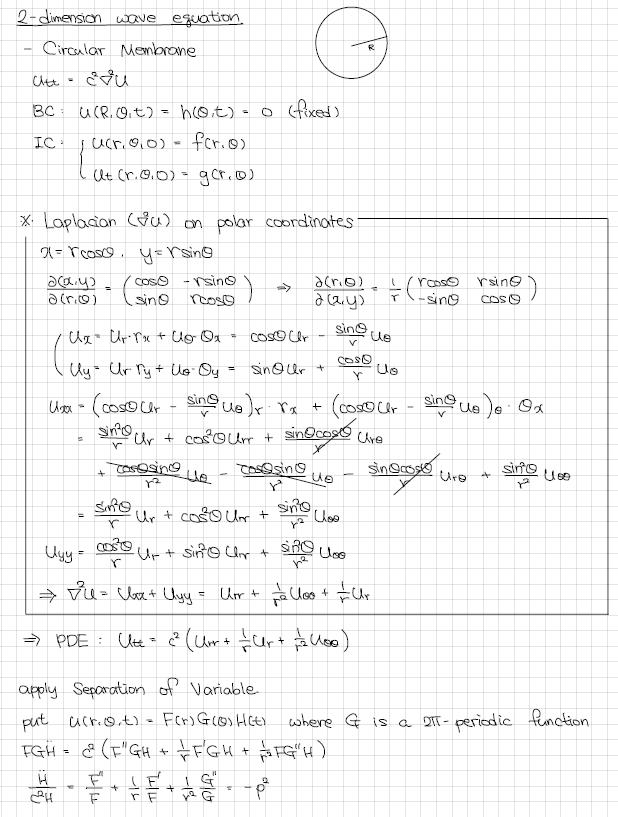 2-dimension wave equation
- Circular Membrane
R
u_tt = c²∇²u
BC: u(R,θ,t) = h(θ,t) = 0 (fixed)
IC: { u(r,θ,0) = f(r,θ)
u_t(r,θ,0) = g(r,θ)
※ Laplacian (∇²u) on polar coordinates
x = rcosθ, y = rsinθ
∂(x,y)/∂(r,θ) = (cosθ -rsinθ; sinθ rcosθ) ⇒ ∂(r,θ)/∂(x,y) = 1/r (rcosθ rsinθ; -sinθ cosθ)
( u_x = u_r·r_x + u_θ·θ_x = cosθu_r - sinθ/r u_θ
u_y = u_r r_y + u_θ·θ_y = sinθu_r + cosθ/r u_θ
u_xx = (cosθu_r - sinθ/r u_θ)_r · r_x + (cosθu_r - sinθ/r u_θ)_θ · θ_x
= sin²θ/r u_r + cos²θu_rr + sinθcosθ/r u_rθ
+ cosθsinθ/r² u_θ - cosθsinθ/r² u_θ - sinθcosθ/r u_rθ + sin²θ/r² u_θθ
= sin²θ/r u_r + cos²θu_rr + sin²θ/r² u_θθ
u_yy = cos²θ/r u_r + sin²θu_rr + sin²θ/r² u_θθ
⇒ ∇²u = u_xx + u_yy = u_rr + 1/r² u_θθ + 1/r u_r
⇒ PDE : u_tt = c²(u_rr + 1/r u_r + 1/r² u_θθ)
apply Separation of Variable
put u(r,θ,t) = F(r)G(θ)H(t) where G is a 2π-periodic function
FGḦ = c²(F''GH + 1/r F'GH + 1/r² FG''H)
Ḧ/c²H = F''/F + 1/r F'/F + 1/r² G''/G = -p²